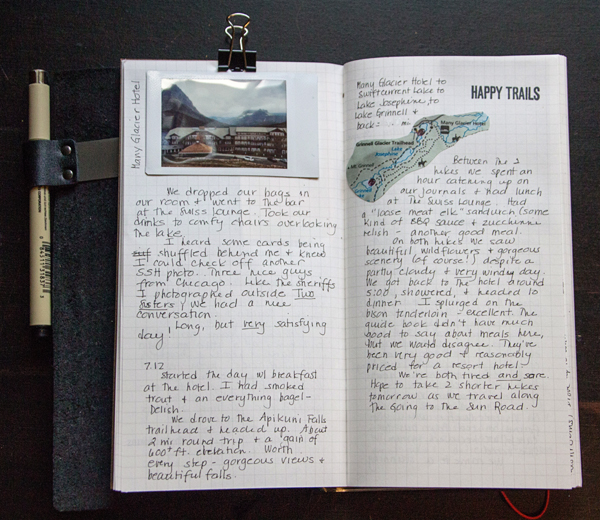 Many Glacier Hotel
We dropped our bags in
our room & went to the bar
at the Swiss Lounge. Took our
drinks to comfy chairs overlooking
the lake.
I heard some cards being
shuffled behind me & knew
I could check off another
SSH photo. Three nice guys
from Chicago. Like the sheriffs
I photographed outside Two
Sisters, we had a nice
conversation.
Long, but very satisfying
day!
7.12
Started the day w/ breakfast
at the hotel. I had smoked
trout & an everything bagel-
Delish.
We drove to the Apikuni Falls
trailhead & headed up. About
2 mi round trip & a gain of
600+ ft. elevation. Worth
every step - gorgeous views &
beautiful falls.
Many Glacier Hotel to
Swiftcurrent Lake to
Lake Josephine to
Lake Grinnell &
back: mi
HAPPY TRAILS
Many Glacier Hotel
Grinnell Glacier Trailhead
Lake Josephine
Between the 2
hikes we spent an
hour catching up on
our journals & had lunch
at the Swiss Lounge. Had
a "loose meat elk" sandwich (some
kind of BBQ sauce & zucchini
relish - another good meal.
On both hikes we saw
beautiful wildflowers & gorgeous
scenery (of course!) despite a
partly cloudy & very windy day.
We got back to the hotel around
5:00, showered, & headed to
dinner. I splurged on the
bison tenderloin - excellent. The
guide book didn't have much
good to say about meals here,
but we would disagree. They've
been very good & reasonably
priced for a resort hotel.
We're both tired and sore.
Hope to take 2 shorter hikes
tomorrow as we travel along
the Going to the Sun Road.